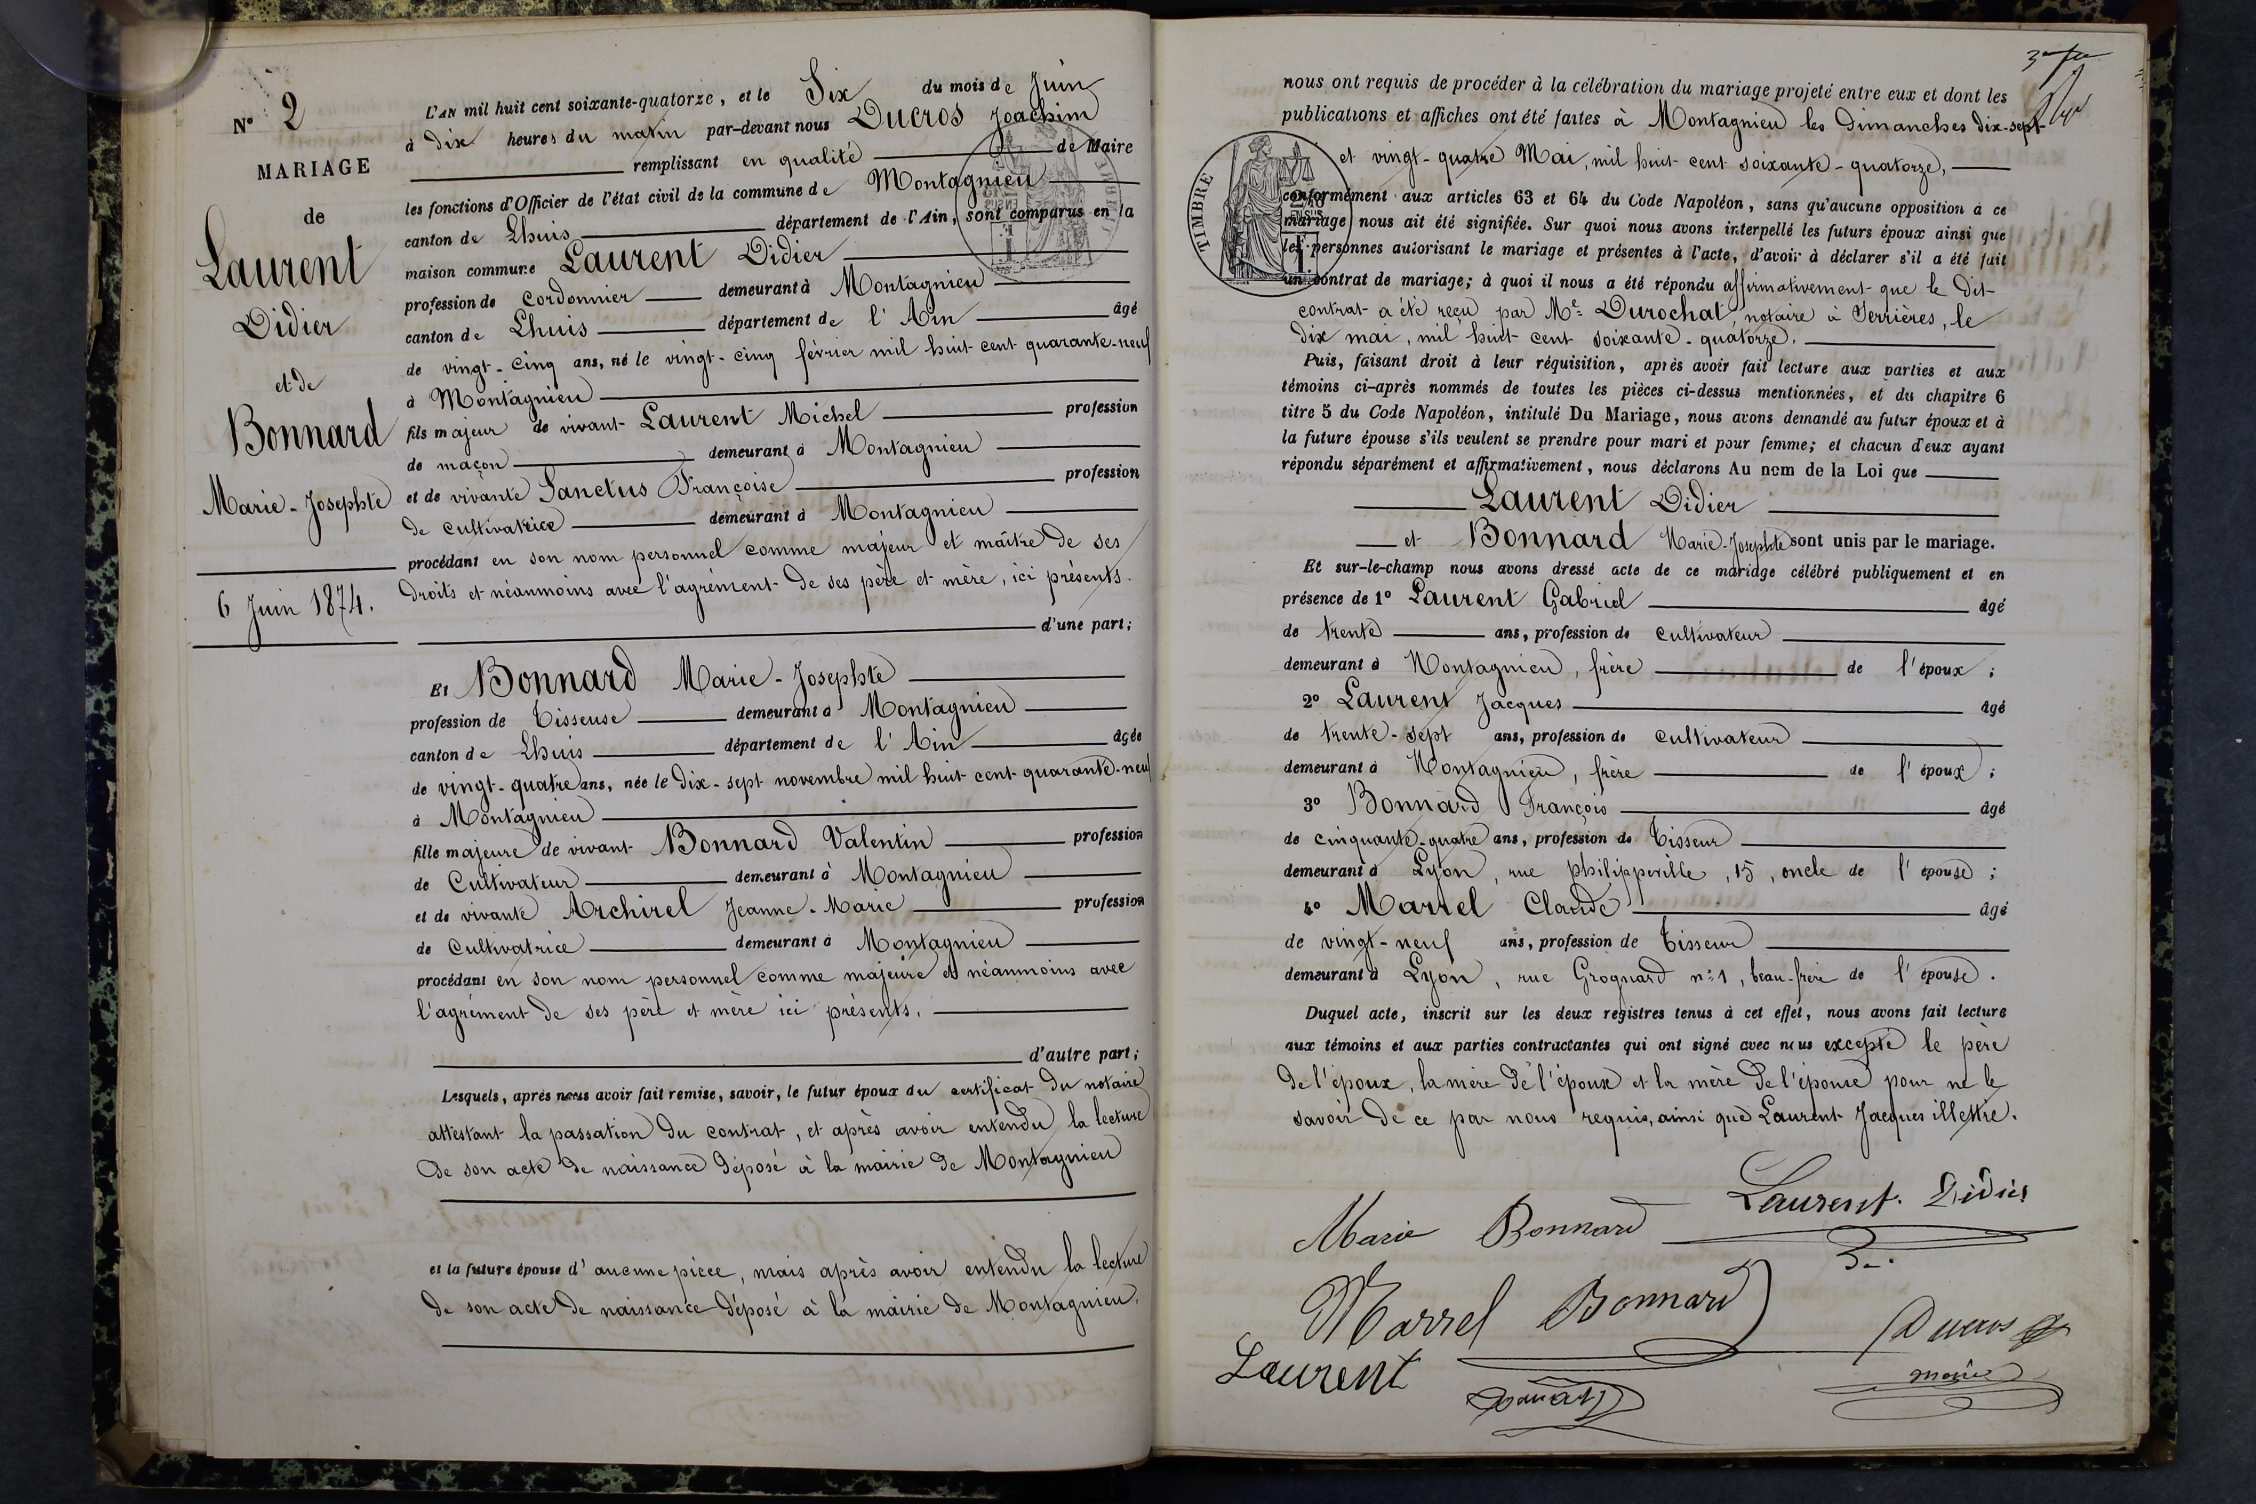 N° 2
MARIAGE
de
Laurent
Didier
et de
Bonnard
Marie-Josephte
6 Juin 1874.
L'AN mil huit cent soixante-quatorze, et le Six du mois de Juin
à dix heures du matin par-devant nous Ducros Joachim
remplissant en qualité de Maire
les fonctions d'Officier de l'état civil de la commune de Montagnieu
canton de Lhuis département de l'Ain, sont comparus en la
maison commune Laurent Didier
profession de cordonnier demeurant à Montagnieu
canton de Lhuis département de l'Ain âgé
de vingt-cinq ans, né le vingt-cinq février mil huit cent quarante-neuf
à Montagnieu
fils majeur de vivant Laurent Michel profession
de maçon demeurant à Montagnieu
et de vivante Sanctus Françoise profession
de cultivatrice demeurant à Montagnieu
procédant en son nom personnel comme majeur et maître de ses
droits et néanmoins avec l'agrément de ses père et mère, ici présents.
d'une part;
Et Bonnard Marie-Josephte
profession de Tisseuse demeurant à Montagnieu
canton de Lhuis département de l'Ain âgée
de vingt-quatre ans, née le dix-sept novembre mil huit cent quarante-neuf
à Montagnieu
fille majeure de vivant Bonnard Valentin profession
de Cultivateur demeurant à Montagnieu
et de vivante Archirel Jeanne-Marie profession
de Cultivatrice demeurant à Montagnieu
procédant en son nom personnel comme majeure et néanmoins avec
l'agrément de ses père et mère ici présents.
d'autre part;
Lesquels, après nous avoir fait remise, savoir, le futur époux du certificat du notaire
attestant la passation du contrat, et après avoir entendu la lecture
de son acte de naissance déposé à la mairie de Montagnieu
et la future épouse d'aucune pièce, mais après avoir entendu la lecture
de son acte de naissance déposé à la mairie de Montagnieu.
nous ont requis de procéder à la célébration du mariage projeté entre eux et dont les
publications et affiches ont été faites à Montagnieu les dimanches dix-sept
et vingt-quatre Mai, mil huit cent soixante-quatorze,
TIMBRE
conformément aux articles 63 et 64 du Code Napoléon, sans qu'aucune opposition à ce
mariage nous ait été signifiée. Sur quoi nous avons interpellé les futurs époux ainsi que
les personnes autorisant le mariage et présentes à l'acte, d'avoir à déclarer s'il a été fait
un contrat de mariage; à quoi il nous a été répondu affirmativement que le dit
contrat a été reçu par Me Durochat, notaire à Serrières, le
dix mai, mil huit cent soixante-quatorze.
Puis, faisant droit à leur réquisition, après avoir fait lecture aux parties et aux
témoins ci-après nommés de toutes les pièces ci-dessus mentionnées, et du chapitre 6
titre 5 du Code Napoléon, intitulé Du Mariage, nous avons demandé au futur époux et à
la future épouse s'ils veulent se prendre pour mari et pour femme; et chacun d'eux ayant
répondu séparément et affirmativement, nous déclarons Au nom de la Loi que
Laurent Didier
et Bonnard Marie-Josephte sont unis par le mariage.
Et sur-le-champ nous avons dressé acte de ce mariage célébré publiquement et en
présence de 1° Laurent Gabriel âgé
de trente ans, profession de cultivateur
demeurant à Montagnieu, frère de l'époux;
2° Laurent Jacques âgé
de trente-sept ans, profession de cultivateur
demeurant à Montagnieu, frère de l'époux;
3° Bonnard François âgé
de cinquante-quatre ans, profession de Tisseur
demeurant à Lyon, rue Philippeville, 15, oncle de l'épouse;
4° Marrel Claude âgé
de vingt-neuf ans, profession de Tisseur
demeurant à Lyon, rue Grognard n° 1, beau-frère de l'épouse.
Duquel acte, inscrit sur les deux registres tenus à cet effet, nous avons fait lecture
aux témoins et aux parties contractantes qui ont signé avec nous excepté le père
de l'époux, la mère de l'époux et la mère de l'épouse pour ne le
savoir de ce par nous requis, ainsi que Laurent Jacques illettré.
Laurent Didier
Marie Bonnard
Marrel Bonnard
Ducros
Laurent
maire